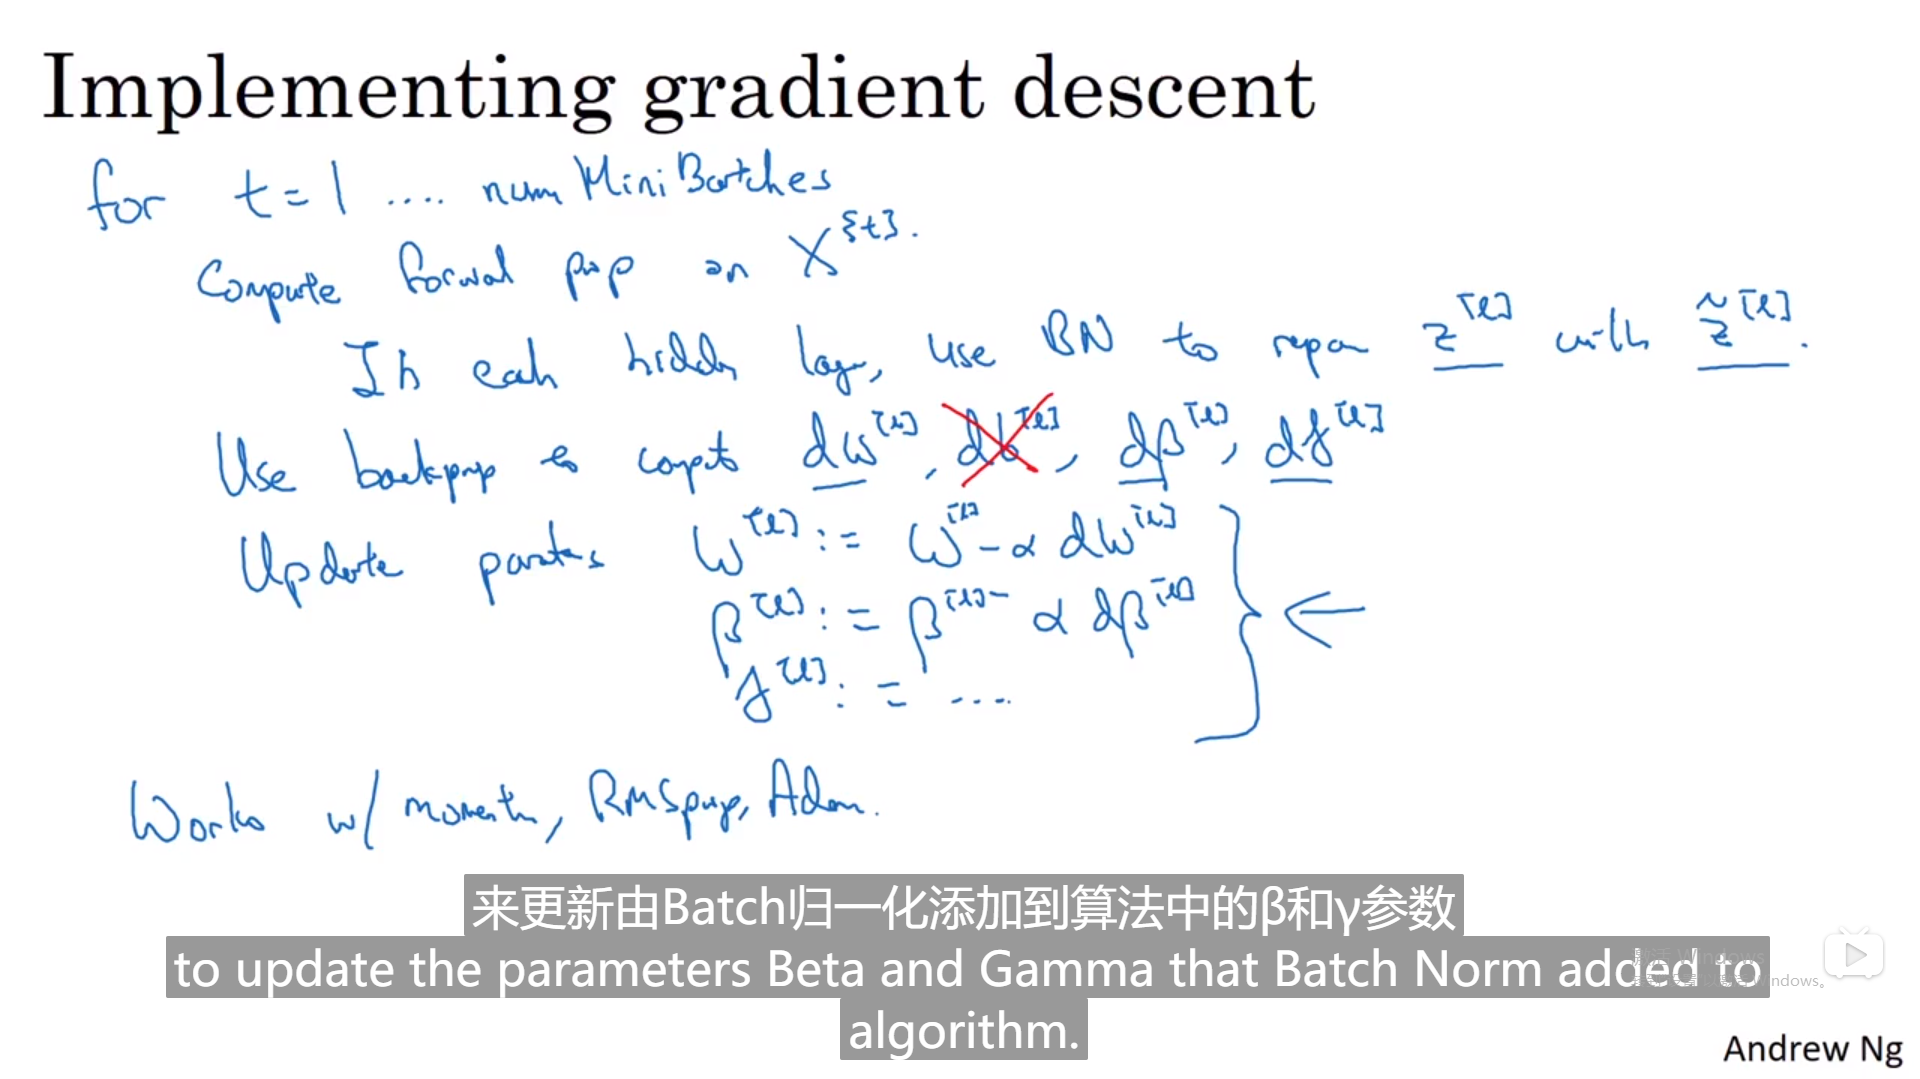 Implementing gradient descent
for t = 1 .... num Mini Batches
Compute forwad prop on X^{t}.
In each hidden layer, use BN to repar z^[l] with z̃^[l].
Use backprop to compute dw^[l], db^[l], dβ^[l], dγ^[l]
Update parates w^[l] := w^[l] - α dw^[l]
β^[l] := β^[l] - α dβ^[l]
γ^[l] := ....
Works w/ moment, RMSprop, Adam.
来更新由Batch归一化添加到算法中的β和γ参数
to update the parameters Beta and Gamma that Batch Norm added to
algorithm.
Andrew Ng